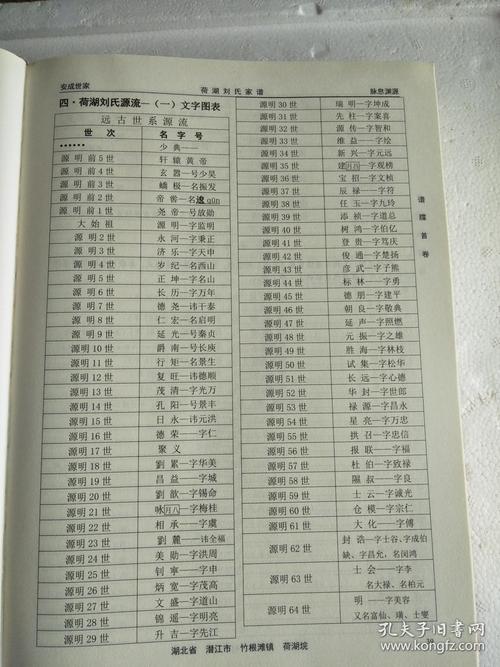 安成世家
荷湖刘氏家谱
脉息渊源
四·荷湖刘氏源流—(一)文字图表
远古世系源流
世次 名字号
•••••• 少典——
源明前5世 轩辕黄帝
源明前4世 玄嚣—号少昊
源明前3世 蟜极—名振发
源明前2世 帝喾—名逡qūn
源明前1世 尧帝—号放勋
大始祖 源明—字监明
源明2世 永河—字秉正
源明3世 济乐—字天申
源明4世 岁纪—名西山
源明5世 正坤—字名山
源明6世 长历—字万年
源明7世 德尧—讳千泰
源明8世 仁宏—名启明
源明9世 延光—号秦贞
源明10世 爵南—号长庚
源明11世 行矩—名景生
源明12世 复旺—讳德顺
源明13世 茂清—字光万
源明14世 孔阳—号景丰
源明15世 日永—讳元洪
源明16世 德荣—字仁
源明17世 聚义
源明18世 劉累—字华美
源明19世 昌益—字城
源明20世 劉歆—字锡命
源明21世 咏月八—字梅桂
源明22世 相承—字虞
源明23世 劉麓—讳全福
源明24世 美勋—字洪周
源明25世 钊寧—字申
源明26世 炳宽—字茂高
源明27世 文盛—字道山
源明28世 锦遥—字明亮
源明29世 升吉—字先江
源明30世 瑞明—字坤成
源明31世 先柱—字案喜
源明32世 源传—字智和
源明33世 维益—字绘
源明34世 新兴—字元远
源明35世 建月八—字观榜
源明36世 宝招—字文桢
源明37世 辰禄—字符
源明38世 任玉—字九玲
源明39世 添桢—字道总
源明40世 树鸿—字伯亿
源明41世 登贵—字笃庆
源明42世 俊通—字楚扬
源明43世 彦武—字子熊
源明44世 标林—字勇
源明45世 德朋—字建平
源明46世 朝良—字敬典
源明47世 延声—字照燃
源明48世 元振—字之雄
源明49世 胜海—字林枝
源明50世 试集—字松华
源明51世 长远—字心德
源明52世 华封—字世郎
源明53世 禄源—字昌永
源明54世 星亮—字万忠
源明55世 拱召—字忠信
源明56世 报联—字福
源明57世 杜伯—字致禄
源明58世 隰叔—字良
源明59世 士云—字诚光
源明60世 仓模—字宗仁
源明61世 大化—字傅
源明62世 封诰—字士谷、字成伯
缺、字昌允，名闵鸿
源明63世 士会—字李
名大禄、名柏元
源明64世 明—字美容
又名富仙、璜、士燮
谱牒首卷
湖北省 潜江市 竹根滩镇 荷湖垸
39
孔夫子旧书网